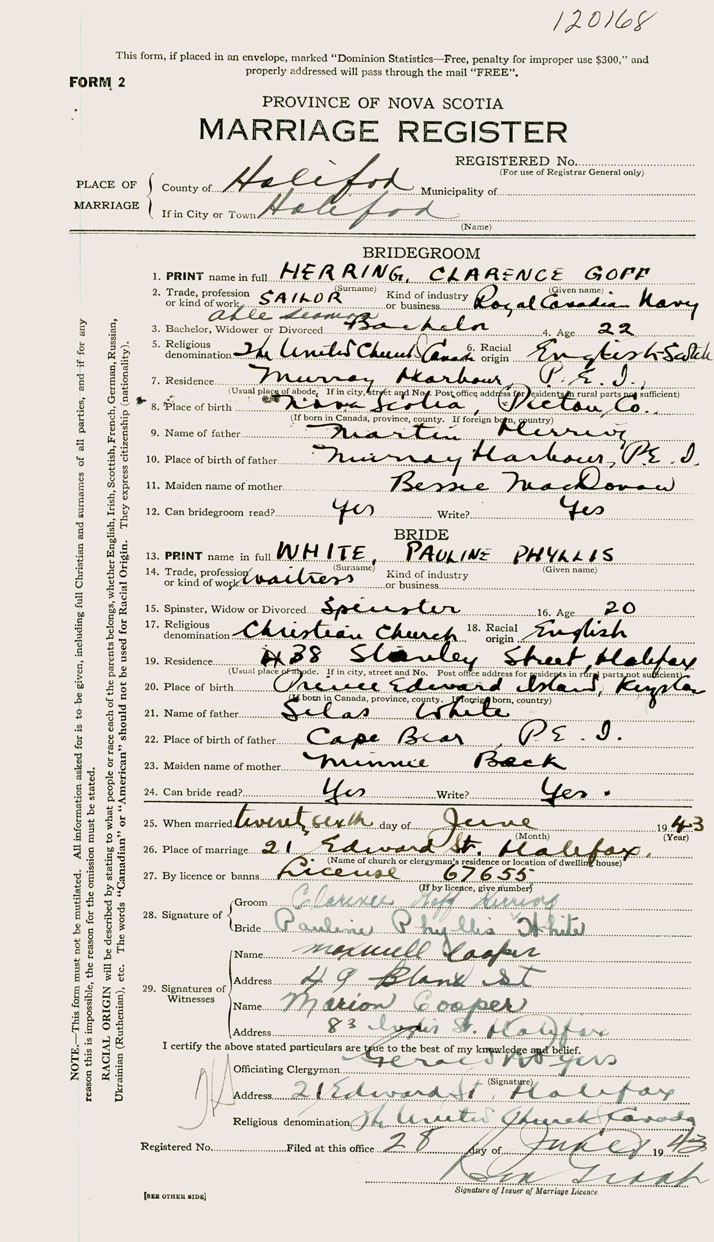 120168
This form, if placed in an envelope, marked "Dominion Statistics—Free, penalty for improper use $300," and
properly addressed will pass through the mail "FREE".
FORM 2
PROVINCE OF NOVA SCOTIA
MARRIAGE REGISTER
REGISTERED No.
(For use of Registrar General only)
PLACE OF MARRIAGE
County of Halifax Municipality of
If in City or Town Halifax
(Name)
BRIDEGROOM
1. PRINT name in full HERRING, CLARENCE GOFF
(Surname) (Given name)
2. Trade, profession or kind of work SAILOR Kind of industry or business Royal Canadian Navy
able seaman
3. Bachelor, Widower or Divorced Bachelor 4. Age 22
5. Religious denomination The United Church Canada 6. Racial origin English-Scotch
7. Residence Murray Harbour, P.E.I.
(Usual place of abode. If in city, street and No. Post office address for residents in rural parts not sufficient)
8. Place of birth Nova Scotia, Pictou Co.
(If born in Canada, province, county. If foreign born, country)
9. Name of father Martin Herring
10. Place of birth of father Murray Harbour, P.E.I.
11. Maiden name of mother Bessie MacDonald
12. Can bridegroom read? Yes Write? Yes
BRIDE
13. PRINT name in full WHITE, PAULINE PHYLLIS
(Surname) (Given name)
14. Trade, profession or kind of work waitress Kind of industry or business
15. Spinster, Widow or Divorced Spinster 16. Age 20
17. Religious denomination Christian Church 18. Racial origin English
19. Residence 438 Stanley Street, Halifax
(Usual place of abode. If in city, street and No. Post office address for residents in rural parts not sufficient)
20. Place of birth Prince Edward Island,
(If born in Canada, province, county. If foreign born, country)
21. Name of father Silas White
22. Place of birth of father Cape Bear, P.E.I.
23. Maiden name of mother Minnie Beck
24. Can bride read? Yes Write? Yes.
25. When married twenty sixth day of June 1943
(Month) (Year)
26. Place of marriage 21 Edward St. Halifax.
(Name of church or clergyman's residence or location of dwelling house)
27. By licence or banns License 67655
(If by licence, give number)
28. Signature of
Groom Clarence Goff Herring
Bride Pauline Phyllis White
29. Signatures of Witnesses
Name Maxwell Cooper
Address 49 St
Name Marion Cooper
Address 83 St. Halifax
I certify the above stated particulars are true to the best of my knowledge and belief.
Officiating Clergyman Gerald Rogers
(Signature)
Address 21 Edward St. Halifax
Religious denomination The United Church Canada
Registered No. Filed at this office 28 day of June 1943
Signature of Issuer of Marriage Licence
[SEE OTHER SIDE]
NOTE.—This form must not be mutilated. All information asked for is to be given, including full Christian and surnames of all parties, and if for any
reason this is impossible, the reason for the omission must be stated.
RACIAL ORIGIN will be described by stating to what people or race each of the parents belongs, whether English, Irish, Scottish, French, German, Russian,
Ukrainian (Ruthenian), etc. The words "Canadian" or "American" should not be used for Racial Origin. They express citizenship (nationality).